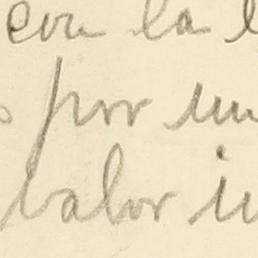 con la
por un
valor